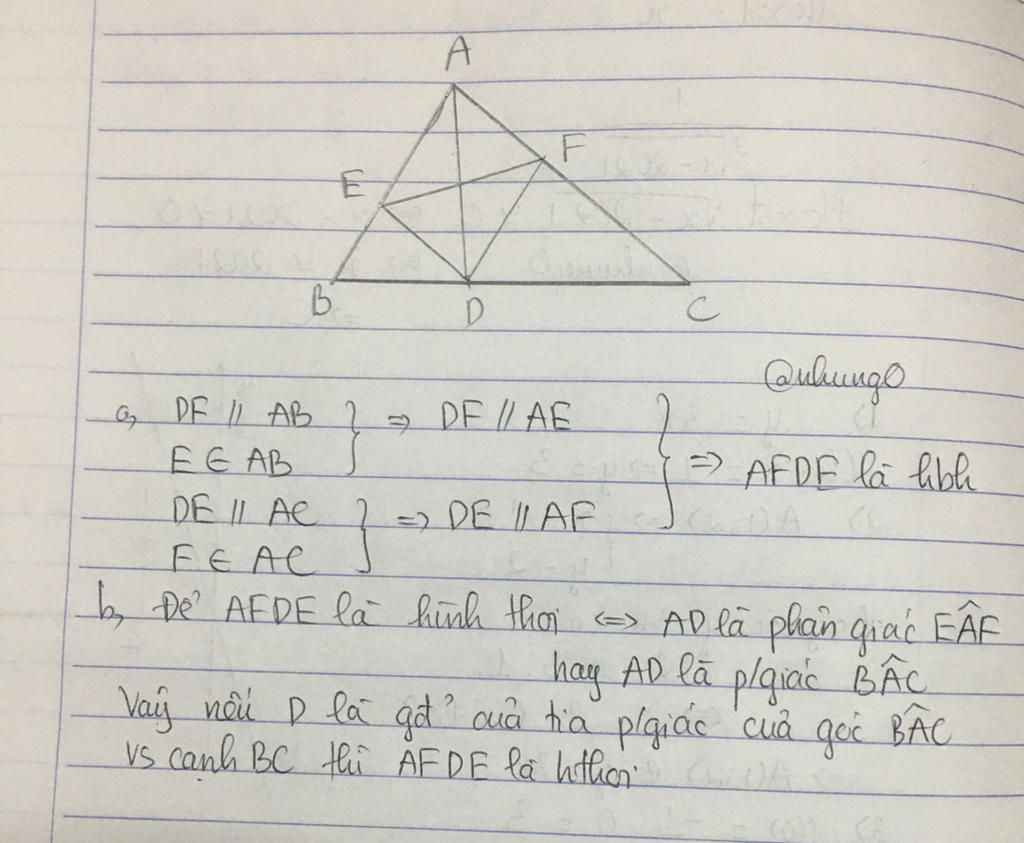 A
F
E
B
D
C
@nhung0
a, DF // AB } => DF // AE
E ∈ AB
=> AFDE là hbh
DE // AC } => DE // AF
F ∈ AC
b, Để AFDE là hình thoi <=> AD là phân giác EÂF
hay AD là p/giác BÂC
Vậy nếu D là gđ' của tia p/giác của góc BÂC
vs cạnh BC thì AFDE là hthoi